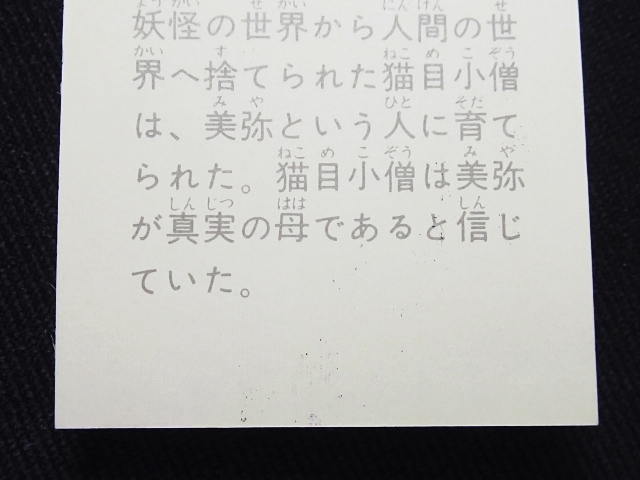 妖怪の世界から人間の世
界へ捨てられた猫目小僧
は、美弥という人に育て
られた。猫目小僧は美弥
が真実の母であると信じ
ていた。